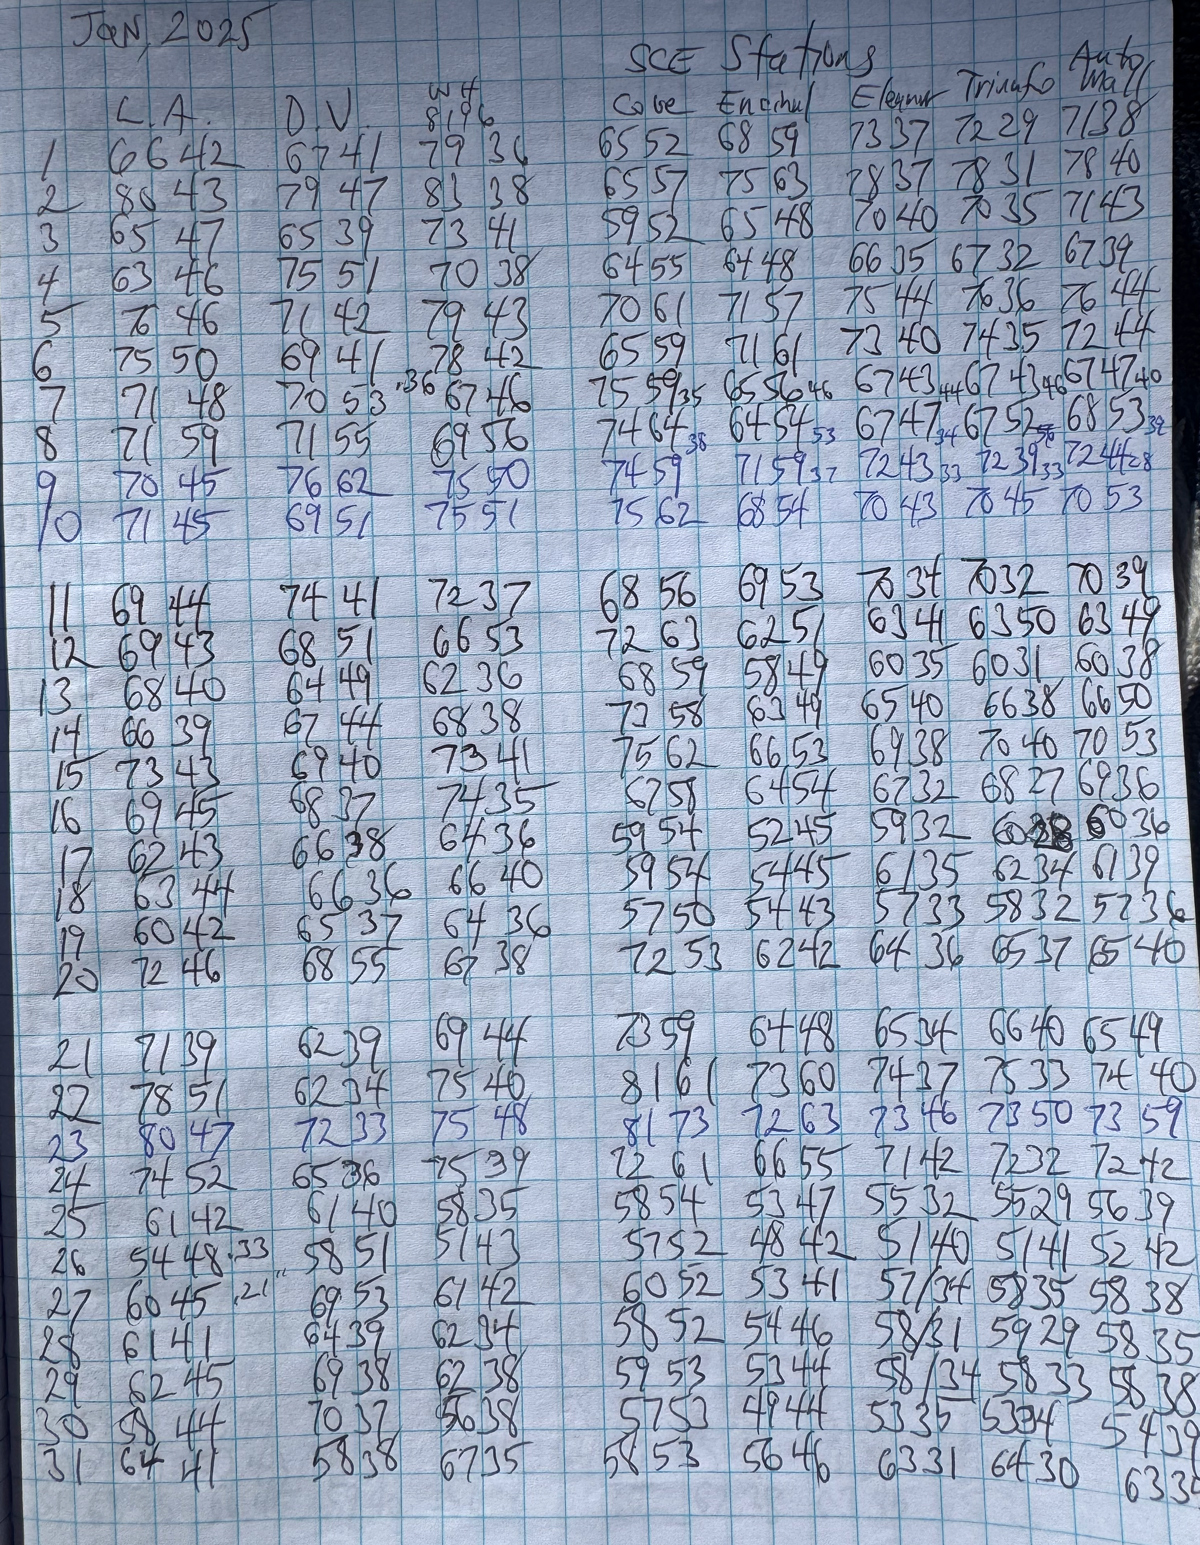 JAN, 2025
SCE Stations
L.A. D.V. WH 8196 Cove Encinal Eleanor Triunfo Auto Mall
1 66 42 67 41 79 36 65 52 68 59 73 37 72 29 71 38
2 80 43 79 47 83 38 65 57 75 63 78 37 78 31 78 40
3 65 47 65 39 73 41 59 52 65 48 70 40 70 35 71 43
4 63 46 75 51 70 38 64 55 64 48 66 35 67 32 67 39
5 76 46 71 42 79 43 70 61 71 57 75 44 76 36 76 44
6 75 50 69 41 78 42 65 59 71 61 73 40 74 35 72 44
7 71 48 70 53 .36 67 46 75 59 35 65 56 46 67 43 44 67 43 46 67 47 40
8 71 59 71 55 69 56 74 64 38 64 54 53 67 47 34 67 52 68 53 39
9 70 45 76 62 75 50 74 59 71 59 37 72 43 33 72 39 33 72 44 28
10 71 45 69 51 75 51 75 62 68 54 70 43 70 45 70 53
11 69 44 74 41 72 37 68 56 69 53 70 34 70 32 70 39
12 69 43 68 51 66 53 72 63 62 51 63 41 63 50 63 49
13 68 40 64 49 62 36 68 59 58 49 60 35 60 31 60 38
14 66 39 67 44 68 38 73 58 63 49 65 40 66 38 66 50
15 73 43 69 40 73 41 75 62 66 53 69 38 70 40 70 53
16 69 45 68 37 74 35 67 58 64 54 67 32 68 27 69 36
17 62 43 66 38 64 36 59 54 52 45 59 32 60 28 60 36
18 63 44 66 36 66 40 59 54 54 45 61 35 62 34 61 39
19 60 42 65 37 64 36 57 50 54 43 57 33 58 32 57 36
20 72 46 68 55 67 38 72 53 62 42 64 36 65 37 65 40
21 71 39 62 39 69 44 73 59 64 48 65 34 66 40 65 49
22 78 51 62 34 75 40 81 61 73 60 74 37 75 33 74 40
23 80 47 72 33 75 48 81 73 72 63 73 46 73 50 73 59
24 74 52 65 36 75 39 72 61 66 55 71 42 72 32 72 42
25 61 42 61 40 58 35 58 54 53 47 55 32 55 29 56 39
26 54 48 .33 58 51 51 43 57 52 48 42 51 40 51 41 52 42
27 60 45 .21" 69 53 61 42 60 52 53 41 57/34 58 35 58 38
28 61 41 64 39 62 34 58 52 54 46 58/31 59 29 58 35
29 62 45 69 38 62 38 59 53 53 44 58/34 58 33 58 38
30 58 44 70 37 56 38 57 53 49 44 53 35 53 34 54 39
31 64 41 58 38 67 35 58 53 56 46 63 31 64 30 63